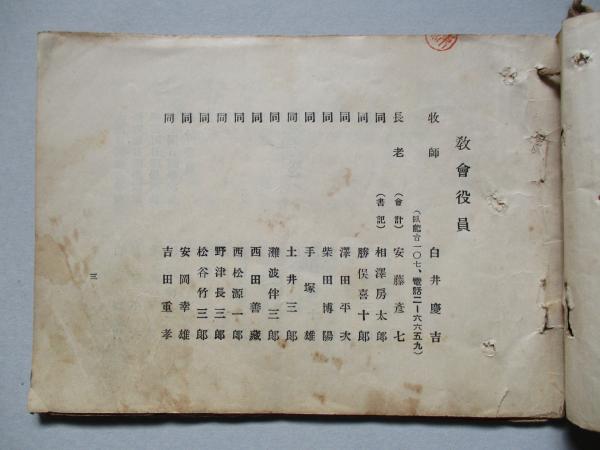 教會役員
牧師 白井慶吉
(臥龍台一〇七、電話二―六六五九)
長老 (會計) 安藤彦七
同 (書記) 相澤房太郎
同 勝俣喜十郎
同 澤田平次
同 柴田博陽
同 手塚一雄
同 土井三郎
同 灘波伴三郎
同 西田善藏
同 西松源一郎
同 野津長三郎
同 松谷竹三郎
同 安岡幸雄
同 吉田重孝
三